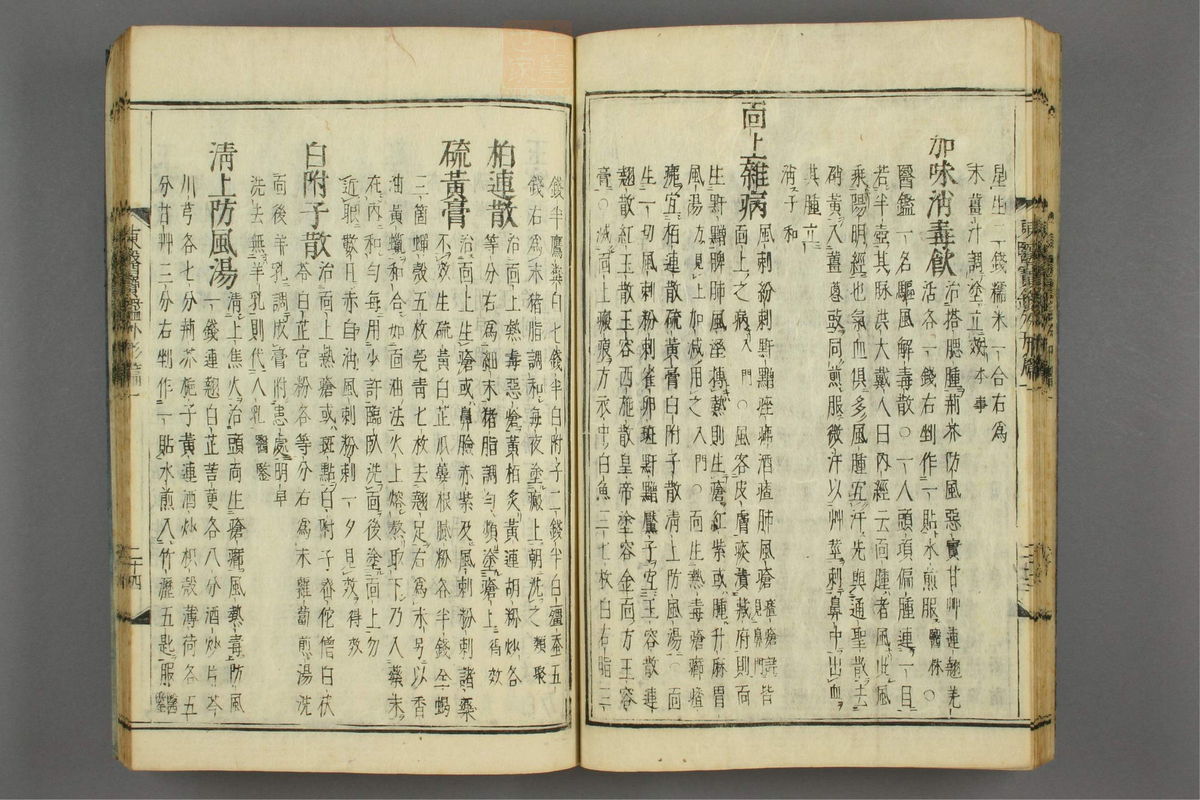 星生二錢糯米一合右爲
末薑汁調塗立效本事
加味消毒飮治搭腮腫荊芥防風惡實甘艸連翹羌
活各一錢右剉作一貼水煎服醫林○
醫鑑一名驅風解毒散○一人頭項偏腫連一目
若半壺其脉洪大戴人曰內經云面腫者風此風
乘陽明經也氣血俱多風腫宜汗先與通聖散去
硝黃入薑葱豉同煎服微汗以艸莖刺鼻中出血
其腫立
消子和
面上雜病風刺粉刺䵟䵳痤疿酒齄肺風瘡齄瘡詳見鼻門皆
面上之病入門○風客皮膚痰漬藏府則面
生䵟䵳脾肺風濕搏熱則生瘡紅紫或腫升麻胃
風湯方見上加減用之入門○面生熱毒瘡癤齄
疱宜栢連散硫黃膏白附子散淸上防風湯○面
生一切風刺粉刺雀卵斑䵟䵳黶子宜玉容散連
翹散紅玉散玉容西施散皇帝塗容金面方玉容
膏○滅面上瘢痕方衣中白魚二七枚白石脂三
錢半鷹糞白七錢半白附子二錢半白殭蚕五
錢右爲末猪脂調和每夜塗瘢上朝洗之類聚
栢連散治面上熱毒惡瘡黃栢炙黃連胡粉炒各
等分右爲細末猪脂調勻頻塗瘡上得效
硫黃膏治面上生瘡或鼻臉赤紫及風刺粉刺諸藥
不效生硫黃白芷瓜蔞根膩粉各半錢全蝎
三箇蟬殼五枚芫靑七枚去翹足右爲末另以香
油黃蠟和合如面油法火上熔熬取下乃入藥末
在內和勻每用少許臨臥洗面後塗面上勿
近眼數日赤自消風刺粉刺一夕見效得效
白附子散治面上熱瘡或斑點白附子密佗僧白茯
苓白芷官粉各等分右爲末蘿葍煎湯洗
面後羊乳調成膏付患處明早
洗去無羊乳則代人乳醫鑒
淸上防風湯淸上焦火治頭面生瘡癤風熱毒防風
一錢連翹白芷桔更各八分酒炒片芩
川芎各七分荊芥梔子黃連酒炒枳殼薄荷各五
分甘艸三分右剉作一貼水煎入竹瀝五匙服醫鑒
東醫寶鑑外形篇一
二十四